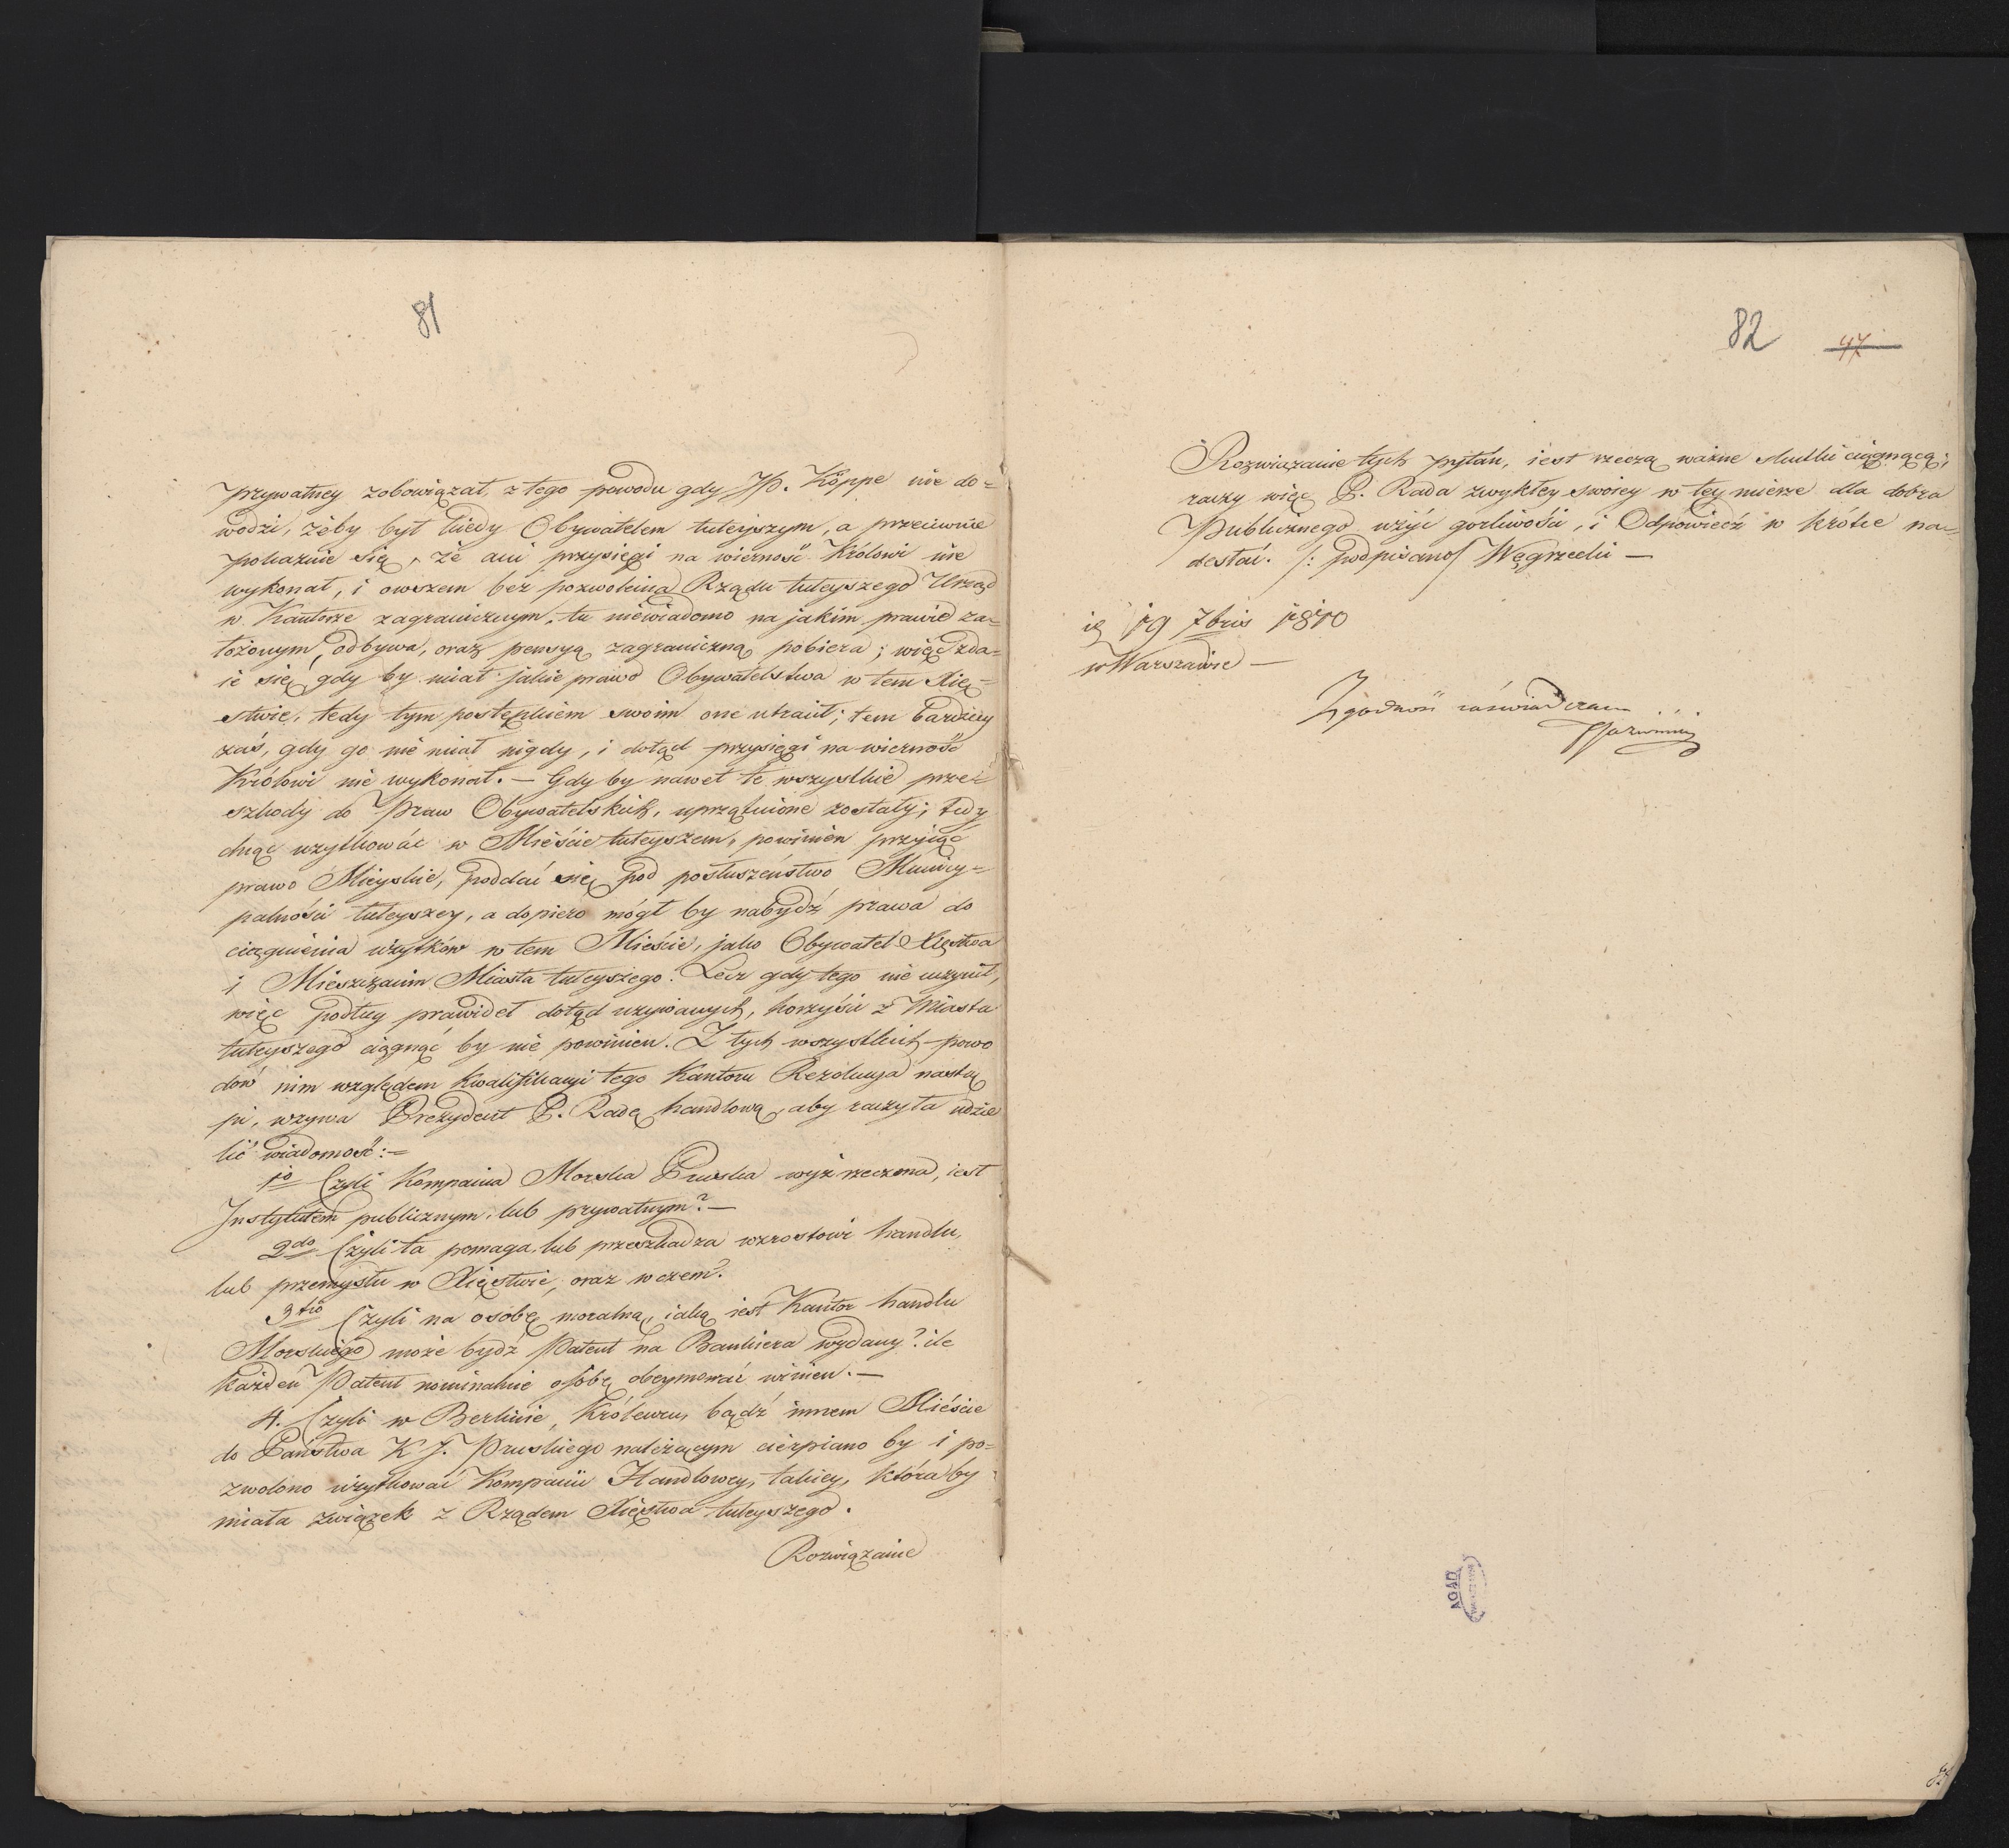 81
prywatney zobowiązał, z tego powodu gdy JP. Köppe nie do=
wodzi, żeby był kiedy Obywatelem tuteyszym, a przeciwnie
pokazuie się, że ani przysięgi na wierność Królowi nie
wykonał, i owszem bez pozwolenia Rządu tuteyszego Urząd
w Kantorze zagranicznym, tu niewiadomo na jakim prawie za=
łożonym, odbywa, oraz pensyą zagraniczną pobiera; więc zda=
ie się, gdy by miał jakie prawo Obywatelstwa w tem Xię=
stwie, tedy tym postępkiem swoim one utracił; tem bardziey
zaś, gdy go nie miał nigdy, i dotąd przysięgi na wierność
Królowi nie wykonał. — Gdy by nawet te wszystkie prze=
szkody do Praw Obywatelskich, uprzątnione zostały; tedy
chcąc użytkować w Mieście tuteyszem, powinien przyiąć
prawo Mieyskie, poddać się pod posłuszeństwo Municy=
palności tuteyszey, a dopiero mógł by nabydź prawa do
ciągnienia użytków w tem Mieście, jako Obywatel Xięstwa
i Mieszczanin Miasta tuteyszego. Lecz gdy tego nie uczynił,
więc podług prawideł dotąd używanych, korzyści z Miasta
tuteyszego ciągnąć by nie powinien. Z tych wszystkich powo
dów nim względem kwalifikacyi tego Kantoru Rezolucya nastą
pi, wzywa Prezydent P. Radę handlową, aby raczyła udzie
lić wiadomość:=
1o Czyli Kompania Morska Pruska wyż rzeczona, iest
Instytutem publicznym, lub prywatnym? —
2do Czyli ta pomaga, lub przeszkadza wzrostowi handlu,
lub przemysłu w Xięstwie, oraz w czem?
3tio Czyli na osobę moralną, iaką iest Kantor handlu
Morskiego może bydź Patent na Bankiera wydany? ile
każden Patent nominalnie osobę obeymować winien. —
4. Czyli w Berlinie, Królewcu, bądź innem Mieście
do Państwa K J. Pruskiego należącym cierpiano by i po=
zwolono użytkować Kompanii Handlowey, takiey, która by
miała związek z Rządem Xięstwa tuteyszego.
Rozwiązanie
82 47
Rozwiązanie tych pytań, iest rzeczą ważne skutki ciągnącą;
raczy więc P. Rada zwykłey swoiey w tey mierze dla dobra
Publicznego użyć gorliwości, i Odpowiedź w krótce na=
desłać. /: podpisano/ Węgrzecki —
19 7bris 1810
w Warszawie —
Zgodność zaświadczam
AGAD